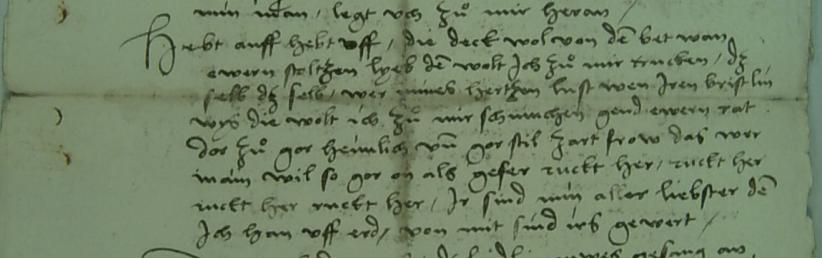 min man / legt vch zuͦ mir heran /
Hebt auff hebt vff / die deck wol von dē bet wan
ewern stoltzen lyeb den wolt ich zuͦ mir trucken / dz
selb dz selb / wer mines hertzen lust wen iren bristlin
wys die wolt ich zuͦ mir schmuchen gend ewern rat
dar zuͦ gor heimlich vn̄ gor stil zart frow das wer
main wil so gor on als gefer ruckt her / ruckt her
ruckt her ruckt her / Ir sind min aller liebster dē
Ich han vff erd / von mir sind irs gewert /
gesang an